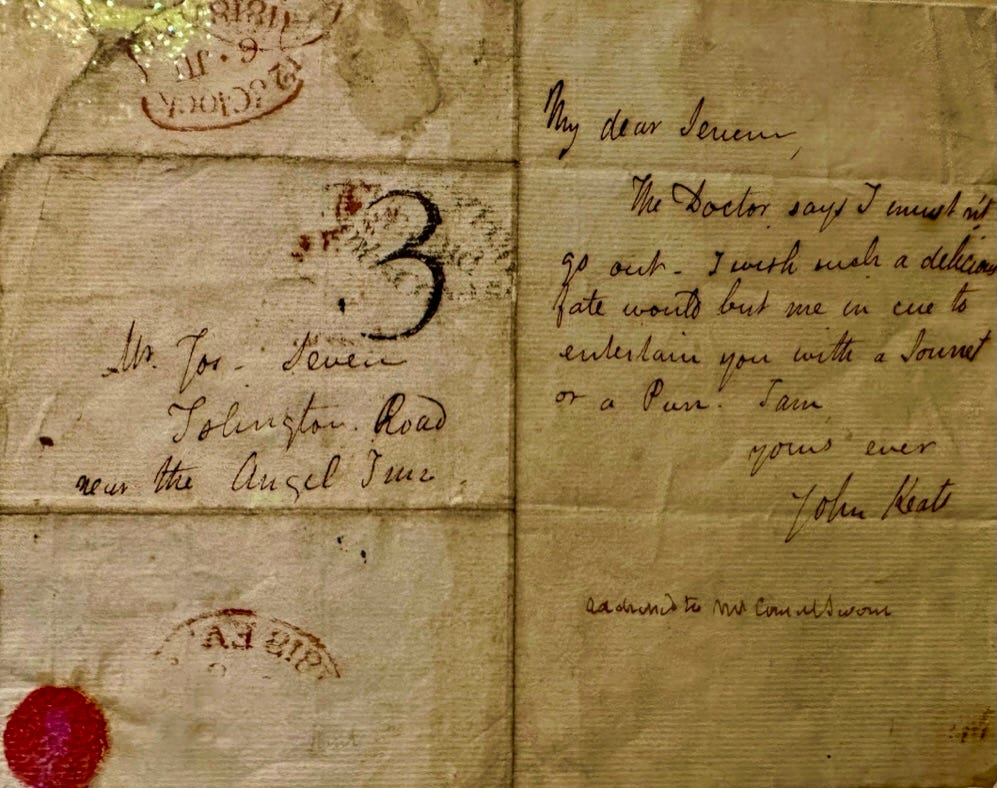 JU . 6
1818
3
Mr. Jos - Severn
Islington Road
near the Angel Inn.
1818
My dear Severn,
The Doctor says I must n't
go out - I wish such a delicious
fate would but me in cue to
entertain you with a Sonnet
or a Pun. I am
yours ever
John Keats
addressed to Mr